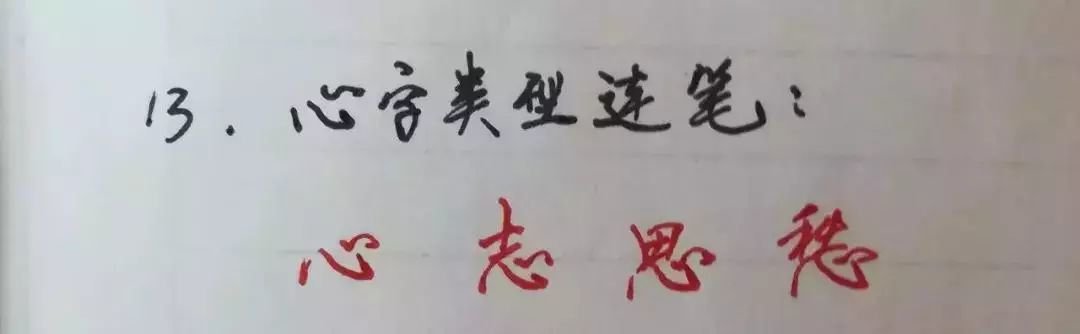 13. 心字类型连笔:
心 志 思 愁